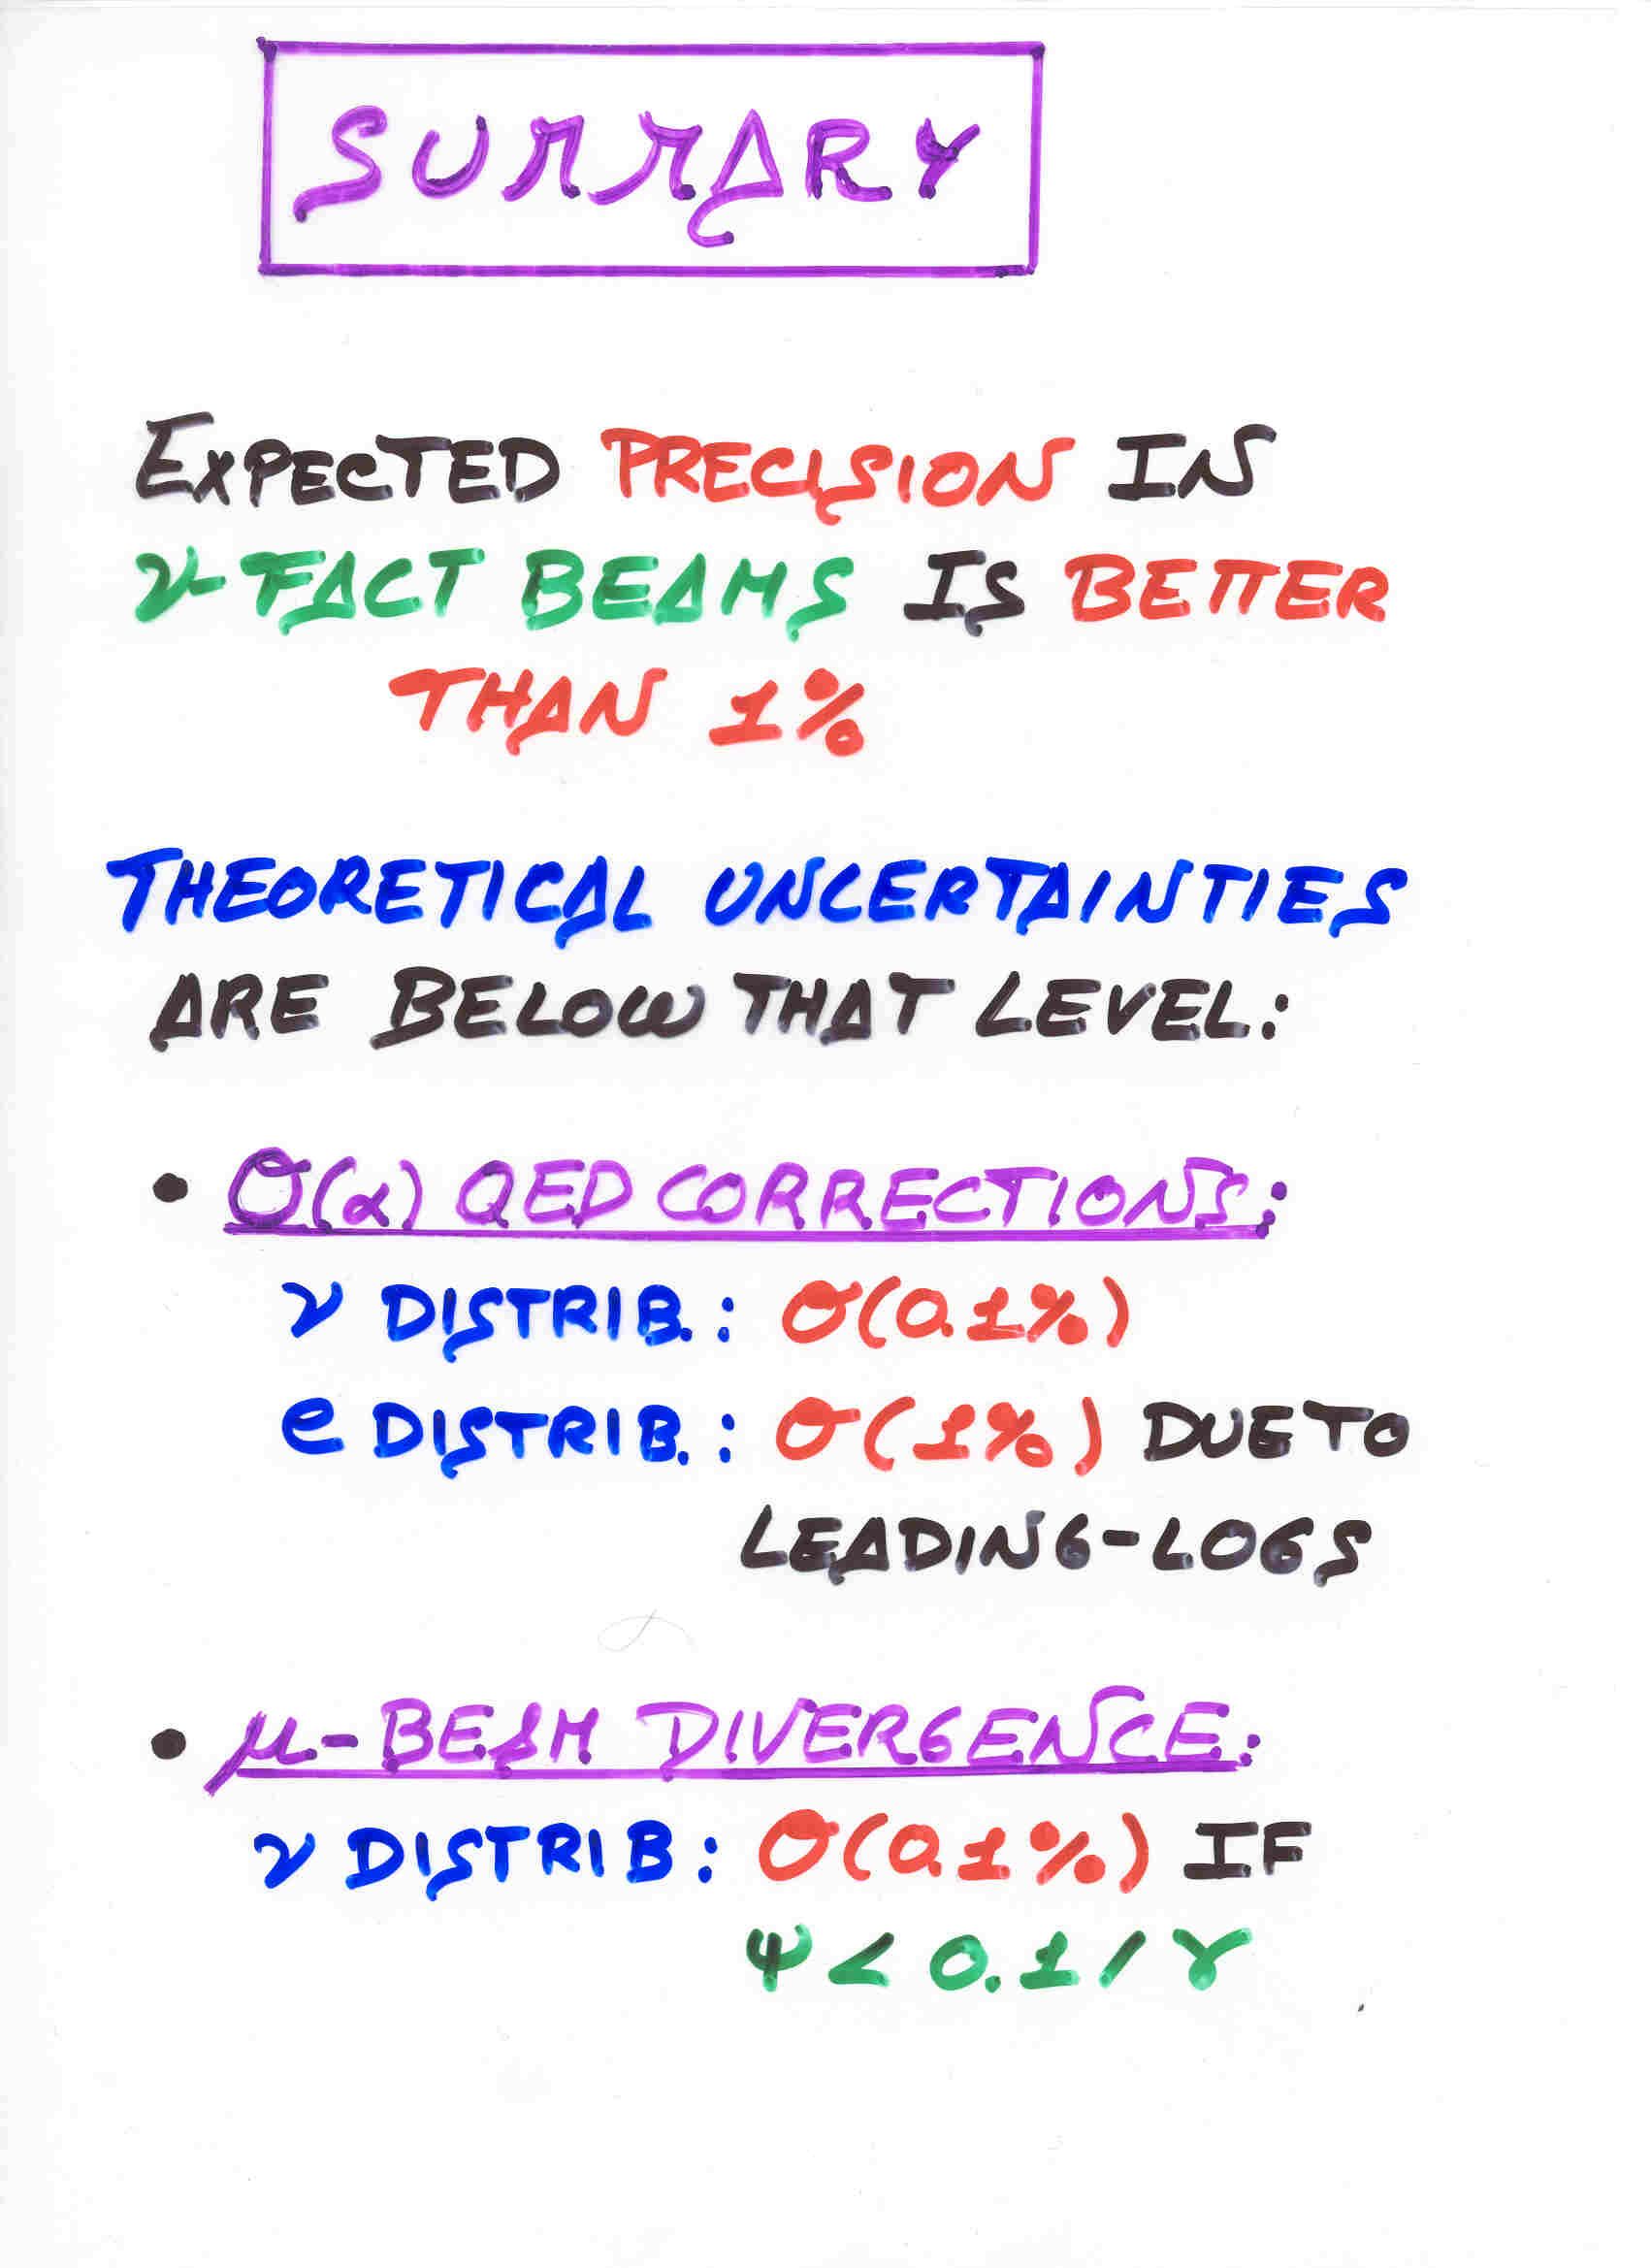 SUMMARY
EXPECTED PRECISION IN
ν-FACT BEAMS IS BETTER
THAN 1%
THEORETICAL UNCERTAINTIES
ARE BELOW THAT LEVEL:
• O(α) QED CORRECTIONS:
ν DISTRIB.: O(0.1%)
e DISTRIB.: O(1%) DUE TO
LEADING-LOGS
• μ-BEAM DIVERGENCE:
ν DISTRIB: O(0.1%) IF
Ψ < 0.1/γ